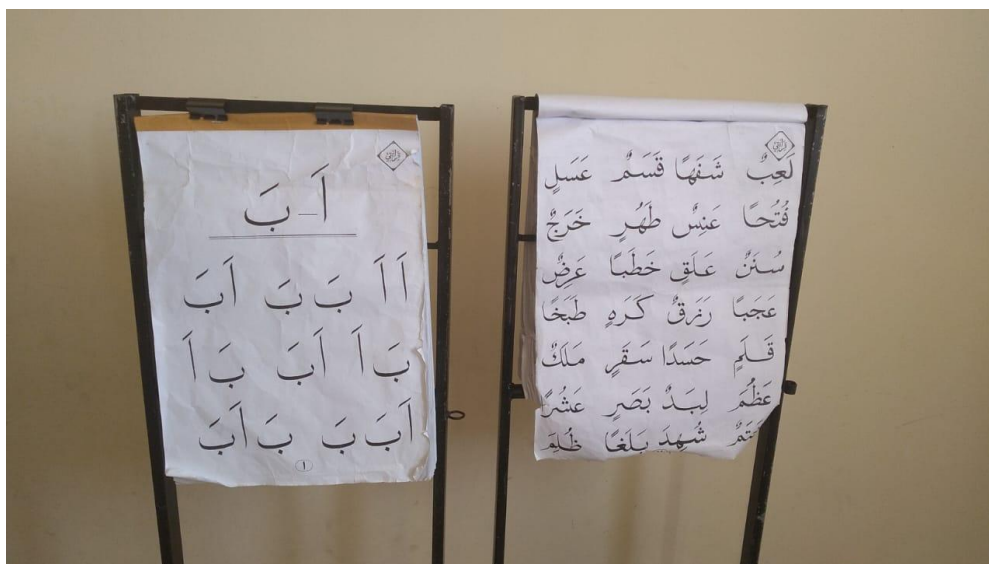 اَ - بَ
اَ اَ بَ بَ اَبَ
بَ اَ اَبَ بَ اَ
اَبَ بَ بَ اَبَ
١
لَعِبٌ شَفَهًا قَسَمٌ عَسَلٍ
فُتُحًا عَنِسٌ طَهُرٍ خَرَجٌ
سُنَنٌ عَلَقٍ خَطَبًا عَرِضٌ
عَجَبًا رَزَقٌ كَرَهٍ طَبَخًا
قَلَمٍ حَسَدًا سَقَرٍ مَلَكٌ
عَظُمَ لِبَدٌ بَصَرٍ عَشُرًا
شُهِدَ بَلَغًا ظُلِمَ